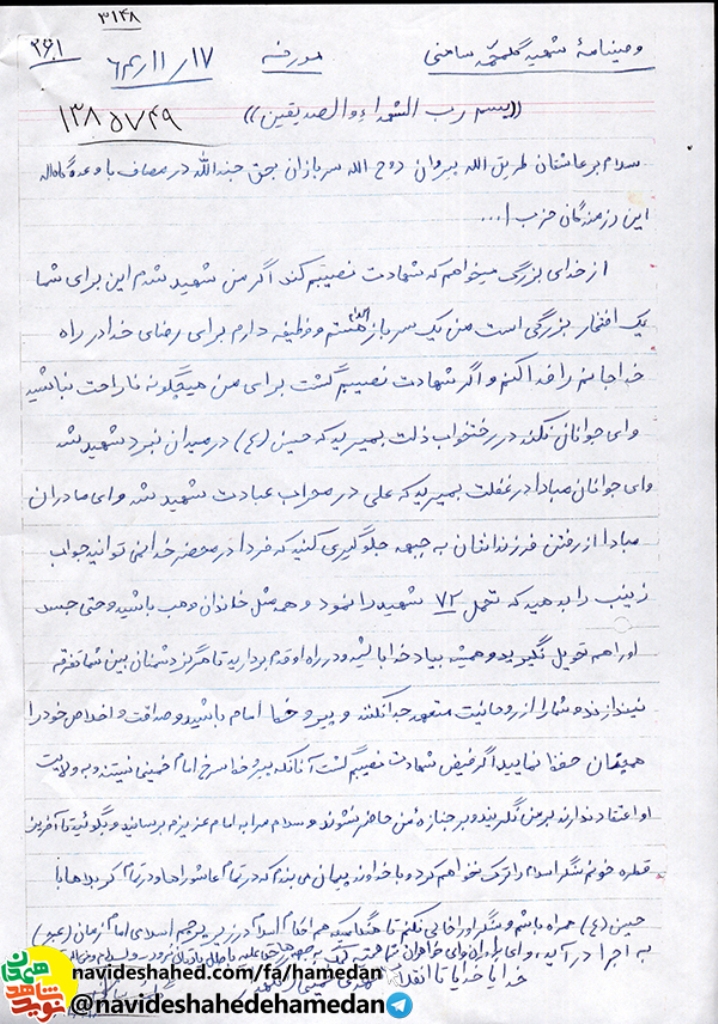 ۳۱۴۸
۲۶۱
وصیتنامهٔ شهید گلمحمد سامنی مورخه ۶۴/۱۱/۱۷
((بسم رب الشهداء والصدیقین)) ۱۳۸۵۷۴۹
سلام بر عاشقان طریق الله پیروان روح الله سربازان بحق جندالله در مصاف با وعده گاه الله
این رزمندگان حزب ا...
از خدای بزرگ میخواهم که شهادت نصیبم کند اگر من شهید شدم این برای شما
یک افتخار بزرگی است من یک سرباز اسلام هستم و وظیفه دارم برای رضای خدا در راه
خدا جانم را فدا کنم و اگر شهادت نصیبم گشت برای من هیچگونه ناراحت نباشید
وای جوانان نکند در رختخواب ذلت بمیرید که حسین (ع) در میدان نبرد شهید شد
وای جوانان مبادا در غفلت بمیرید که علی در محراب عبادت شهید شد وای مادران
مبادا از رفتن فرزندانتان به جبهه جلوگیری کنید که فردا در محضر خدا نمی توانید جواب
زینب را بدهید که تحمل ۷۲ شهید را نمود و همه مثل خاندان وهب باشید و حتی جسد
او را هم تحویل نگیرید و همیشه بیاد خدا باشید و در راه او قدم بردارید تا هرگز دشمنان بین شما تفرقه
نیندازند و شما را از روحانیت متعهد جدا نکنند و پیرو خط امام باشید و صداقت و اخلاص خود را
همچنان حفظ نمایید اگر فیض شهادت نصیبم گشت آنانکه پیرو خط سرخ امام خمینی نیستند و به ولایت
او اعتقاد ندارند بر من نگریند و بر جنازهٔ من حاضر نشوند و سلام مرا به امام عزیزم برسانید و بگوئید تا آخرین
قطره خونم سنگر اسلام را ترک نخواهم کرد و با خداوند پیمان می بندم که در تمام عاشوراها و در تمام کربلاها با
حسین (ع) همراه باشم و سنگر او را خالی نکنم تا هنگامیکه هم احکام اسلام در زیر پرچم اسلامی امام زمان (عج)
به اجرا در آید، وای برادران وای خواهران
خدایا خدایا تا انقلاب مهدی خمینی را نگهدار
navideshahed.com/fa/hamedan
@navideshahedehamedan
نوید شاهد همدان